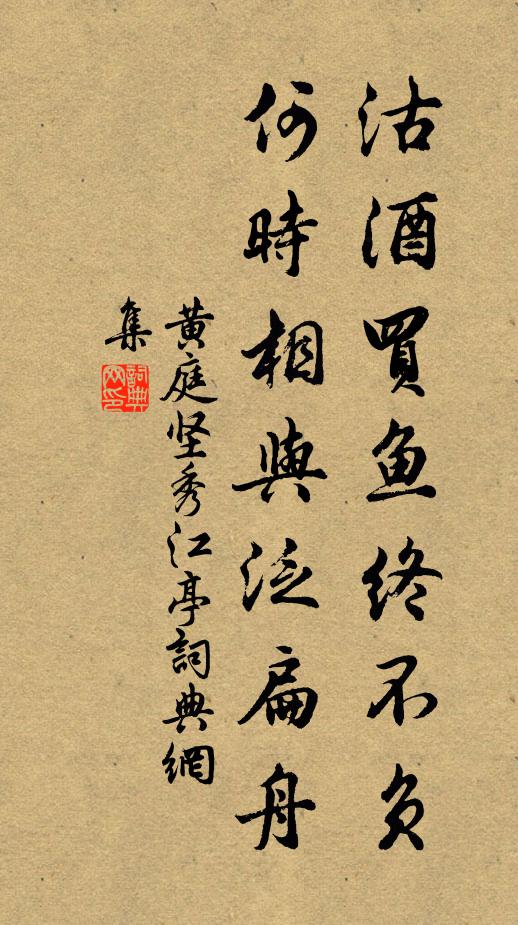 沽酒買魚終不負
何時相與泛扁舟
黄庭坚秀江亭詞典網
集
詞典網印